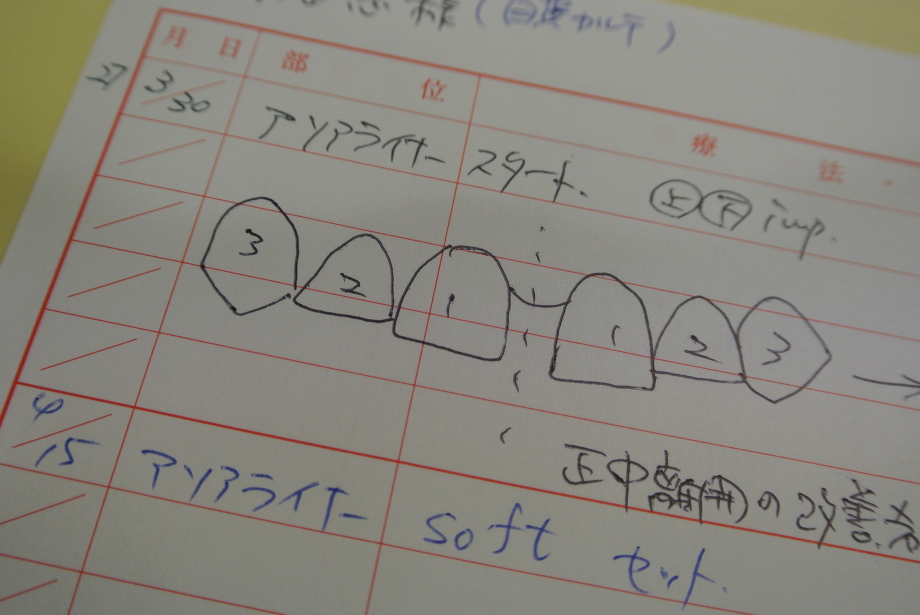 様(自費カルテ)
月 日 部 位 療 法
27 3/30 アソアライナー スタート. 上下 imp.
3 2 1 1 2 3 →
正中離開の
4/15 アソアライナー soft セット.